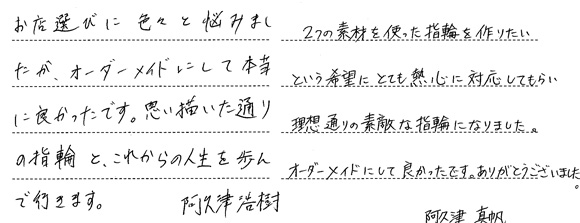 お店選びに色々と悩みまし
たが、オーダーメイドにして本当
に良かったです。思い描いた通り
の指輪と、これからの人生を歩ん
で行きます。 阿久津浩樹
2つの素材を使った指輪を作りたい
という希望にとても熱心に対応してもらい
理想通りの素敵な指輪になりました。
オーダーメイドにして良かったです。ありがとうございました。
阿久津 真帆